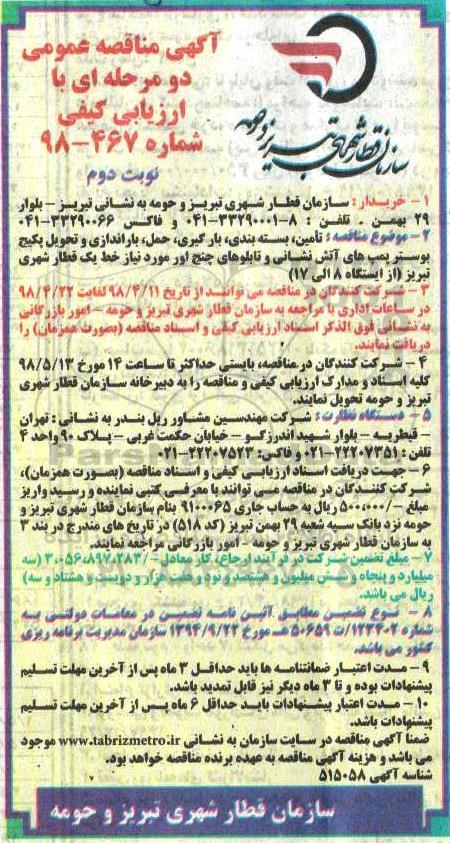 سازمان قطار شهری تبریز و حومه
آگهی مناقصه عمومی
دو مرحله ای با
ارزیابی کیفی
شماره ۴۶۷-۹۸
نوبت دوم
۱- خریدار: سازمان قطار شهری تبریز و حومه به نشانی تبریز - بلوار
۲۹ بهمن . تلفن : ۸-۳۳۲۹۰۰۰۱-۰۴۱ و فاکس ۳۳۲۹۰۰۶۶-۰۴۱
۲- موضوع مناقصه: تأمین، بسته بندی، بار گیری، حمل، باراندازی و تحویل پکیج
بوستر پمپ های آتش نشانی و تابلوهای چنج اور مورد نیاز خط یک قطار شهری
تبریز (از ایستگاه ۸ الی ۱۷)
۳- شرکت کنندگان در مناقصه می توانند از تاریخ ۹۸/۴/۱۱ لغایت ۹۸/۴/۲۲
در ساعات اداری با مراجعه به سازمان قطار شهری تبریز و حومه - امور بازرگانی
به نشانی فوق الذکر اسناد ارزیابی کیفی و اسناد مناقصه (بصورت همزمان) را
دریافت نمایند.
۴- شرکت کنندگان در مناقصه، بایستی حداکثر تا ساعت ۱۴ مورخ ۹۸/۵/۱۳
کلیه اسناد و مدارک ارزیابی کیفی و مناقصه را به دبیرخانه سازمان قطار شهری
تبریز و حومه تحویل نمایند.
۵- دستگاه نظارت: شرکت مهندسین مشاور ریل بندر به نشانی : تهران
- قیطریه - بلوار شهید اندرزگو - خیابان حکمت غربی - پلاک ۹۰ واحد ۴
تلفن : ۲۲۲۰۷۳۵۱-۰۲۱ و فاکس: ۲۲۲۰۷۵۲۳-۰۲۱
۶- جهت دریافت اسناد ارزیابی کیفی و اسناد مناقصه (بصورت همزمان)،
شرکت کنندگان در مناقصه می توانند با معرفی کتبی نماینده و رسید واریز
مبلغ -/۵۰۰،۰۰۰ ریال به حساب جاری ۹۱۰۰۶۵ بنام سازمان قطار شهری تبریز و
حومه نزد بانک سپه شعبه ۲۹ بهمن تبریز (کد ۵۱۸) در تاریخ های مندرج در بند ۳
به سازمان قطار شهری تبریز و حومه - امور بازرگانی مراجعه نمایند.
۷- مبلغ تضمین شرکت در فرآیند ارجاع کار معادل -/۳،۰۵۶،۸۹۷،۲۸۳ (سه
میلیارد و پنجاه و شش میلیون و هشتصد و نود و هفت هزار و دویست و هشتاد و سه)
ریال می باشد.
۸- نوع تضمین مطابق آئین نامه تضمین در معاملات دولتی به
شماره ۱۲۳۴۰۲/ت ۵۰۶۵۹ هـ مورخ ۱۳۹۴/۹/۲۲ سازمان مدیریت برنامه ریزی
کشور می باشد.
۹- مدت اعتبار ضمانتنامه ها باید حداقل ۳ ماه پس از آخرین مهلت تسلیم
پیشنهادات بوده و تا ۳ ماه دیگر نیز قابل تمدید باشد.
۱۰- مدت اعتبار پیشنهادات باید حداقل ۶ ماه پس از آخرین مهلت تسلیم
پیشنهادات باشد.
ضمنا آگهی مناقصه در سایت سازمان به نشانی www.tabrizmetro.ir موجود
می باشد و هزینه آگهی مناقصه به عهده برنده مناقصه خواهد بود.
شناسه آگهی ۵۱۵۰۵۸
سازمان قطار شهری تبریز و حومه